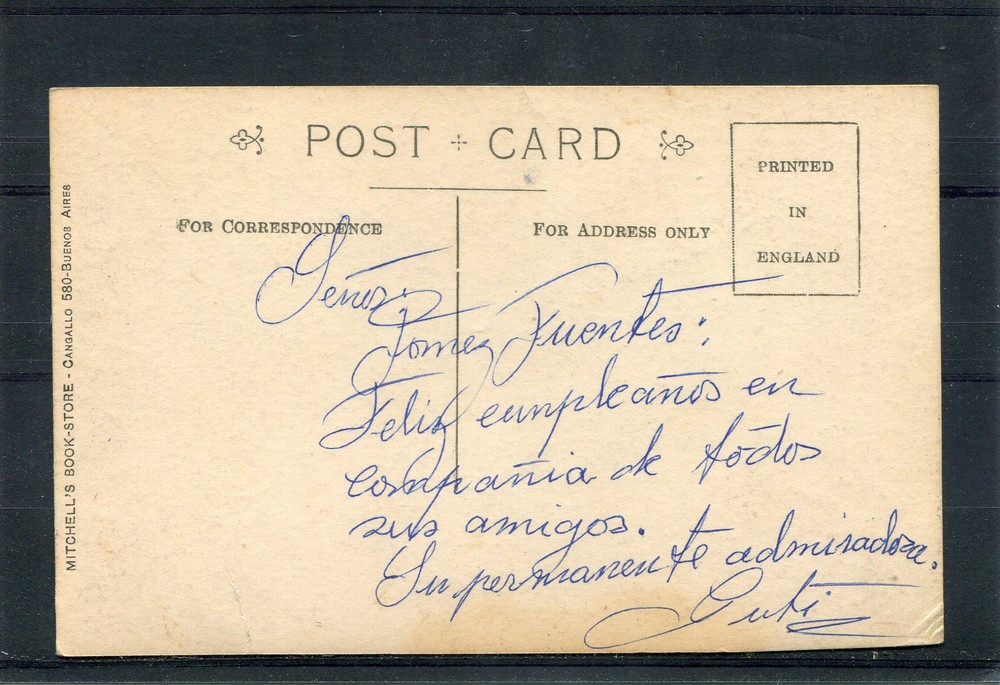 POST CARD
PRINTED
IN
ENGLAND
FOR CORRESPONDENCE
FOR ADDRESS ONLY
MITCHELL'S BOOK-STORE - CANGALLO 580-BUENOS AIRES
Señor:
Fuentes:
Feliz cumpleaños en
compañia de todos
sus amigos.
Su permanente admiradora.